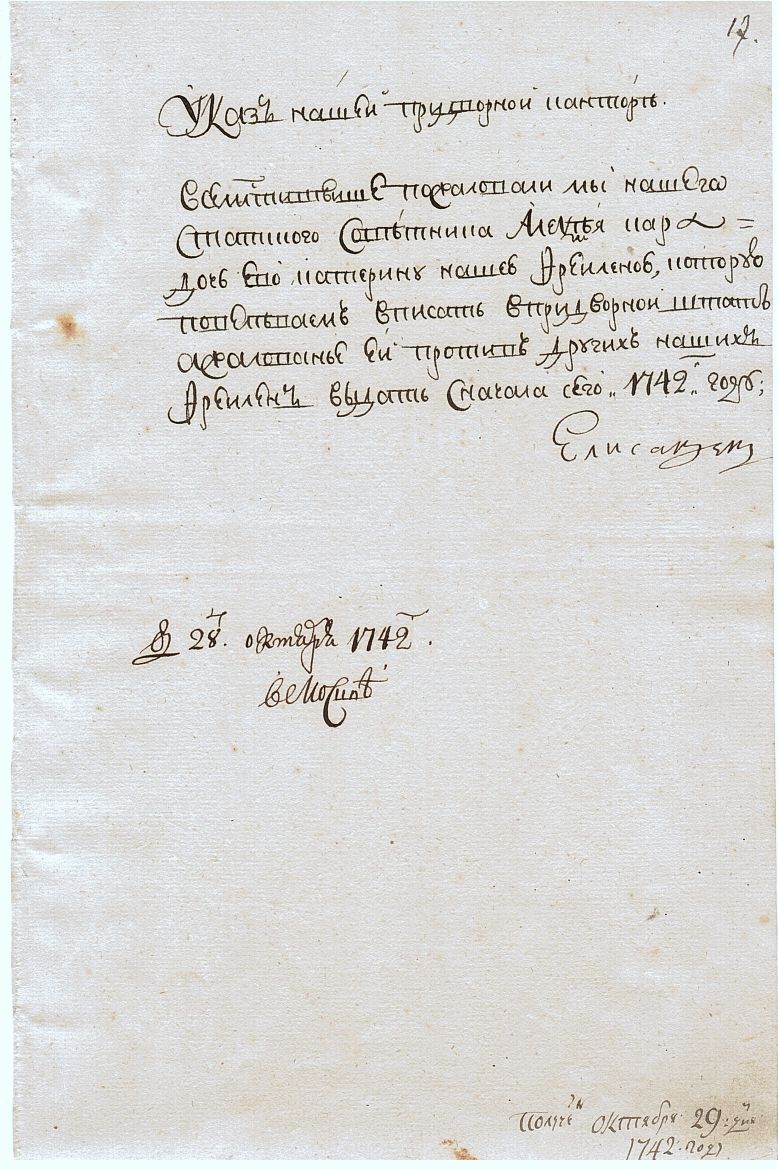 17.
Указъ нашей придворной канторѣ.
Всемилостивѣйше пожаловали мы нашего
статского Совѣтника Алексѣя
дочь ево катерину нашеѣ Фреиленою, которую
повелѣваемъ вписать впридворной штатъ
ажалованье ей противъ другихъ нашихъ
Фреиленъ выдать сначала сего „1742„ году;
Елисаветъ
28. октября 1742.
вМосквѣ
Получен октября 29: дня
1742. году